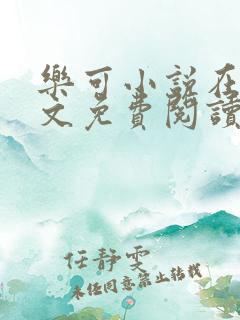 樂可小說在
文免費閱讀
任静雯
未经同意禁止转载